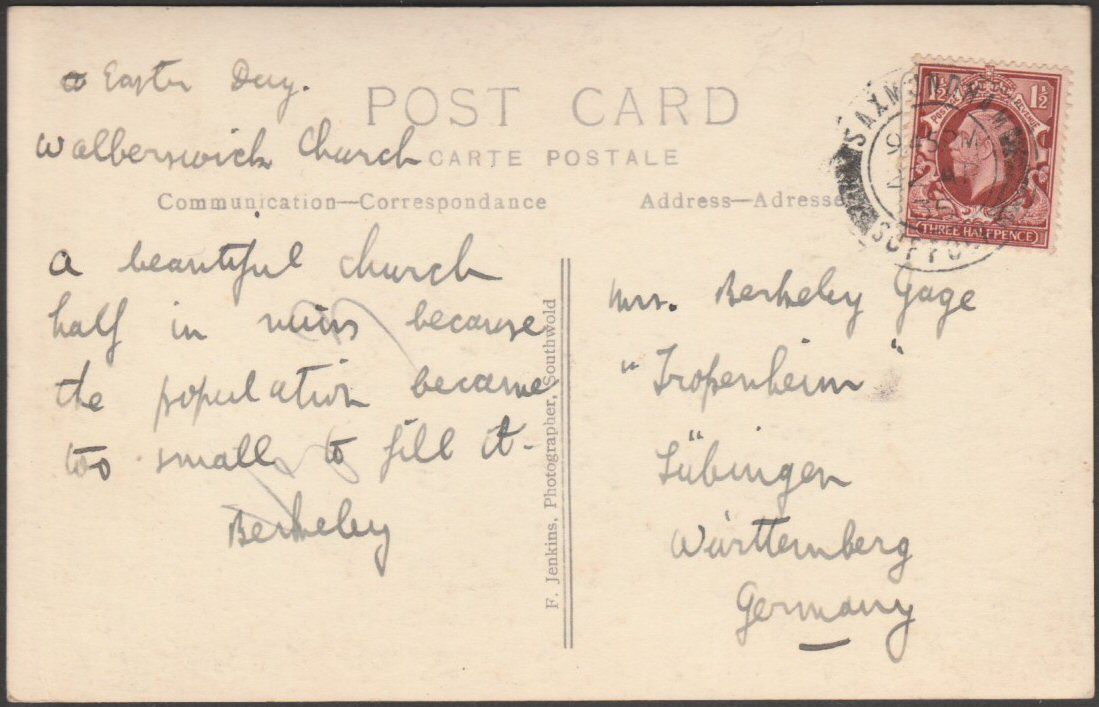 Easter Day.
POST CARD
Walberswick Church
CARTE POSTALE
Communication—Correspondance
Address—Adresse
A beautiful church
half in ruins because
the population became
too small to fill it.
Berkeley
F. Jenkins, Photographer, Southwold
Mrs. Berkeley Gage
"Tropenheim"
Tübingen
Württemberg
Germany
1½ 1½
POSTAGE REVENUE
THREE HALFPENCE
SAXMUNDHAM
SUFFOLK